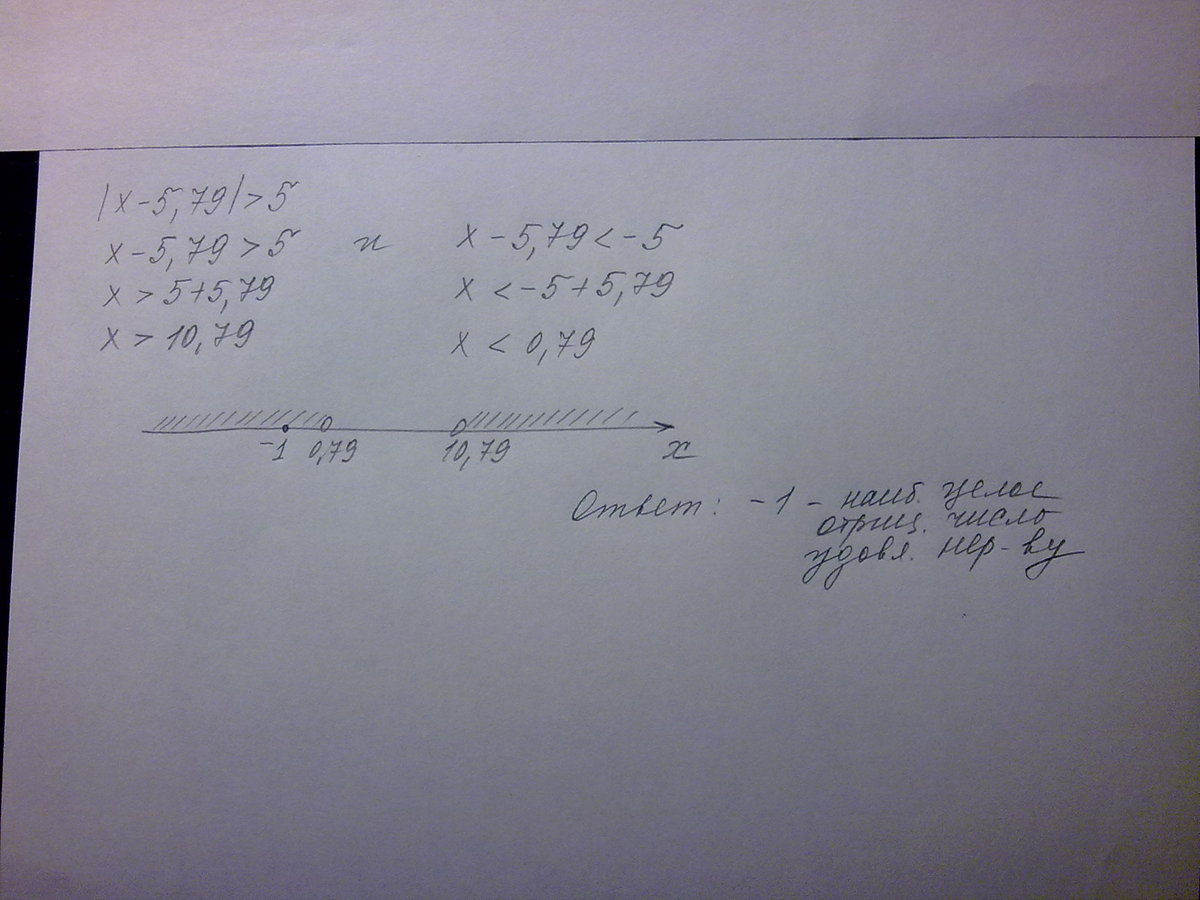 |x-5,79|>5
x-5,79>5 и x-5,79<-5
x>5+5,79 x<-5+5,79
x>10,79 x<0,79
-1 0,79 10,79 x
Ответ: -1 - наиб. целое
отриц. число
удовл. нер-ву